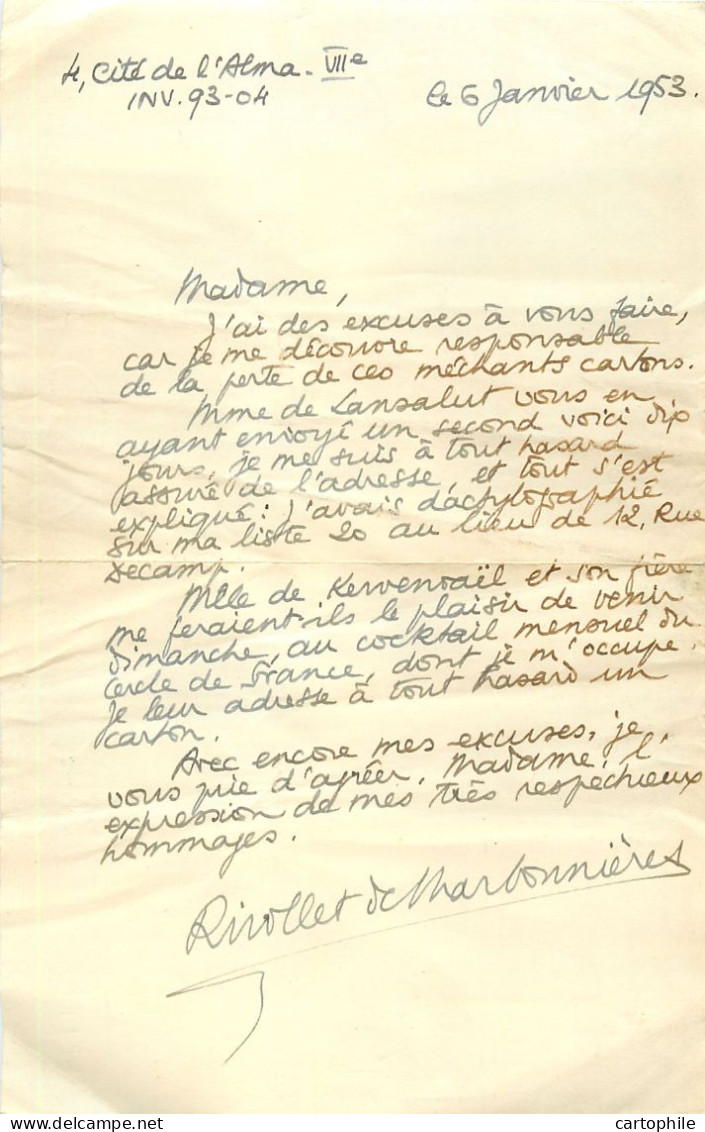 4, Cité de l'Alma - VIIe
INV. 93-04
le 6 Janvier 1953.
Madame,
J'ai des excuses à vous faire,
car je me découvre responsable
de la perte de ces méchants cartons.
Mme de Lansalut vous en
ayant envoyé un second voici dix
jours, je me suis à tout hasard
assuré de l'adresse, et tout s'est
expliqué : J'avais dactylographié
sur ma liste 20 au lieu de 12, Rue
Decamp.
Mlle de Kervenoaël et son frère
me feraient-ils le plaisir de venir
dimanche, au cocktail mensuel du
Cercle de France, dont je m'occupe.
Je leur adresse à tout hasard un
carton.
Avec encore mes excuses, je
vous prie d'agréer, Madame, l'
expression de mes très respectueux
hommages.
Rivollet de Charbonnières
cartophile